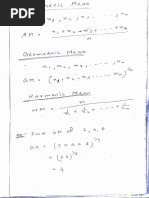 metic Mean
x₁, x₂, x₃, ......, xₙ
AM = x₁ + x₂ + ...... + xₙ / n
Geometric Mean
GM = (x₁ x₂ x₃ ...... xₙ)^1/n
Harmonic Mean
HM = n / 1/x₁ + 1/x₂ + ...... 1/xₙ
Find GM of 2, 4, 8
GM = (2 × 4 × 8)^1/3
= (64)^1/3
= 4